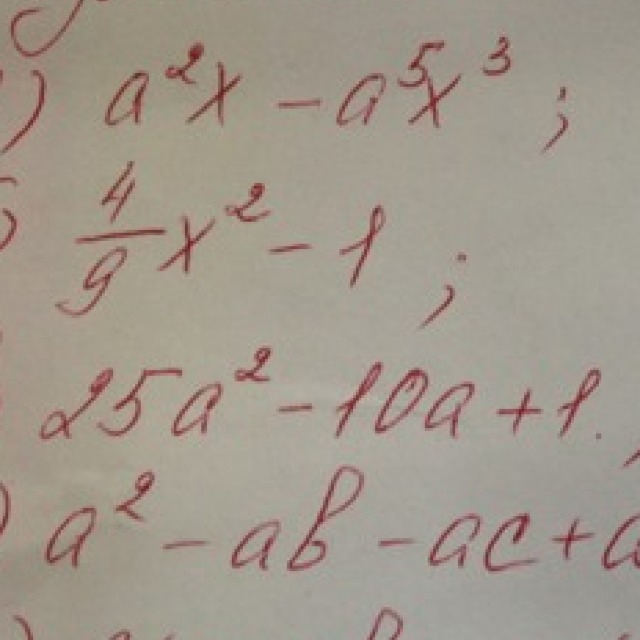 ) a²x - a⁵x³ ;
) 4/9 x² - 1 ;
25a² - 10a + 1.
) a² - ab - ac + a